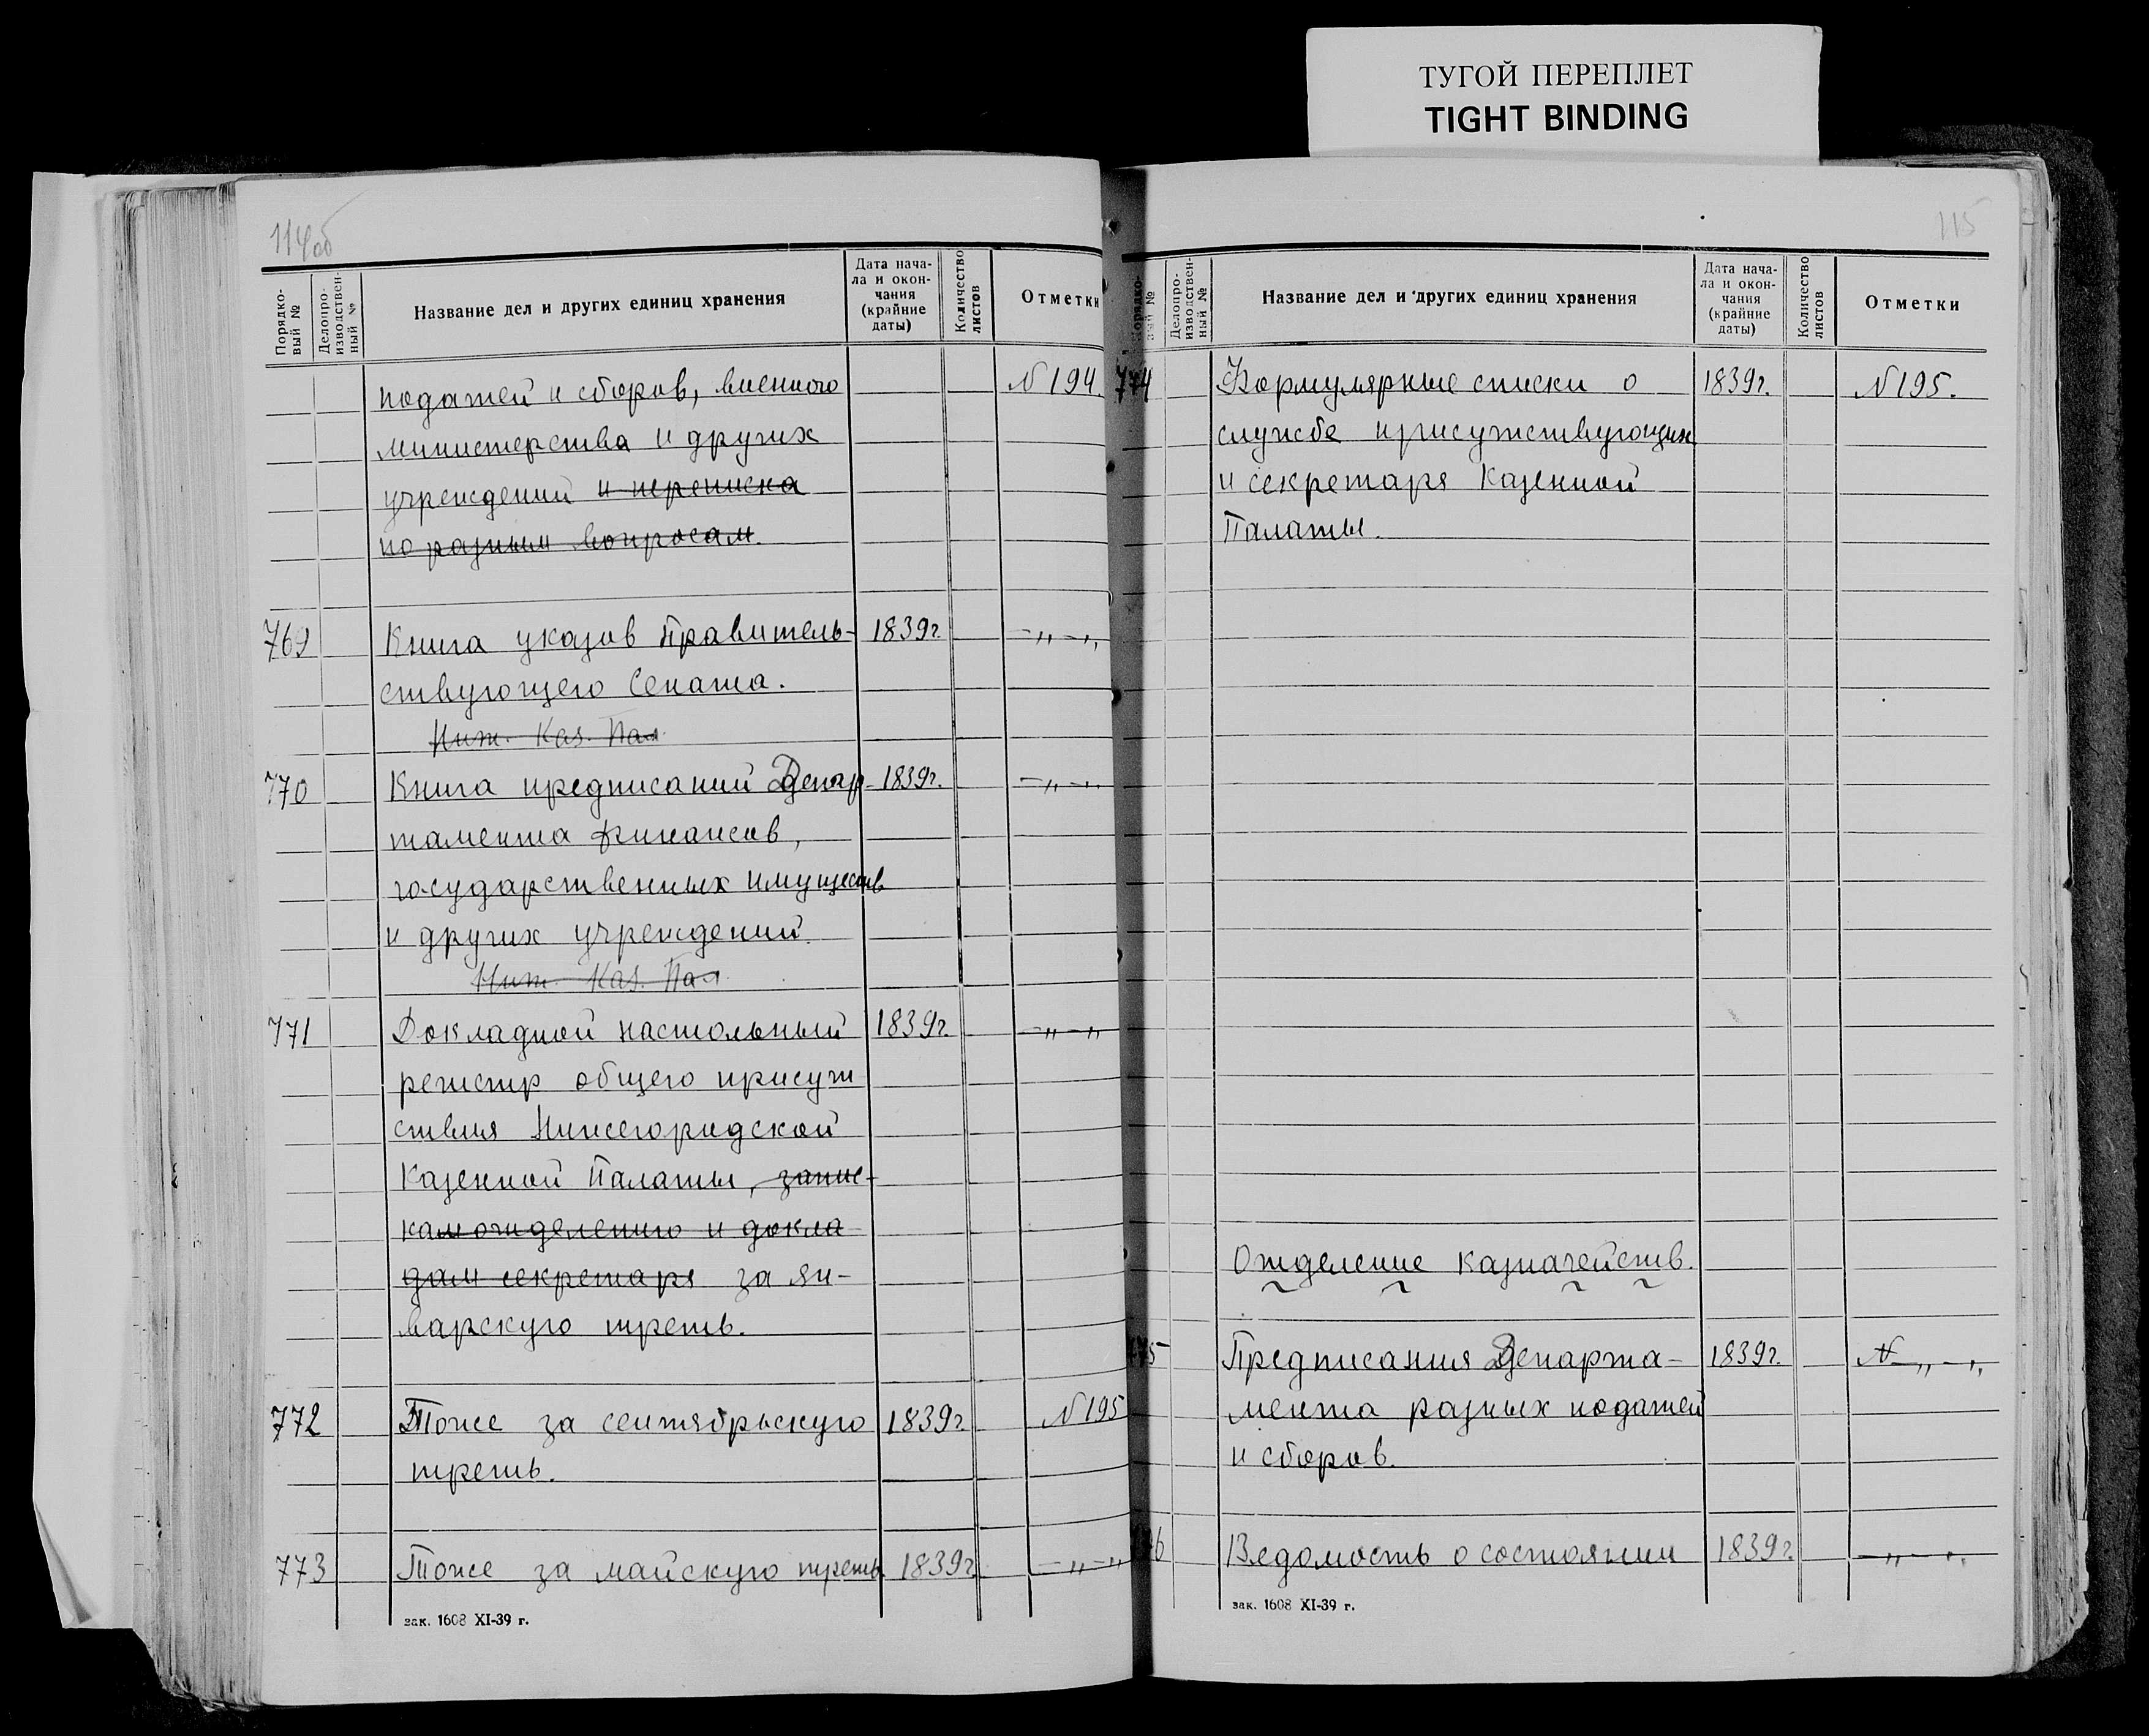 ТУГОЙ ПЕРЕПЛЕТ
TIGHT BINDING
114об
Порядко-
вый №
Делопро-
изводствен-
ный №
Название дел и других единиц хранения
Дата нача-
ла и окон-
чания
(крайние
даты)
Количество
листов
Отметки
податей и сборов, военного N194.
министерства и других
учреждений и переписка
по разным вопросам.
769 Книга указов Правитель- 1839г. -„-„
ствующего Сената.
Ниж. Каз. Пал.
770 Книга предписаний Депар- 1839г. -„-„
тамента финансов,
государственных имуществ
и других учреждений.
Ниж. Каз. Пал.
771 Докладной настольный 1839г. -„-„
регистр общего присут
ствия Нижегородской
Казенной Палаты, запис-
кам отделению и докла
дам секретаря за ян-
варскую треть.
772 Тоже за сентябрьскую 1839г. N195
треть.
773 Тоже за майскую треть. 1839г. -„-„
зак. 1608 XI-39 г.
115
Порядко-
вый №
Делопро-
изводствен-
ный №
Название дел и других единиц хранения
Дата нача-
ла и окон-
чания
(крайние
даты)
Количество
листов
Отметки
774 Формулярные списки о 1839г. N195.
службе присутствующих
и секретаря Казенной
Палаты.
Отделение казначейств.
775 Предписания Департа- 1839г. N-„-„
мента разных податей
и сборов.
776 Ведомость о состоянии 1839г. -„-„
зак. 1608 XI-39 г.